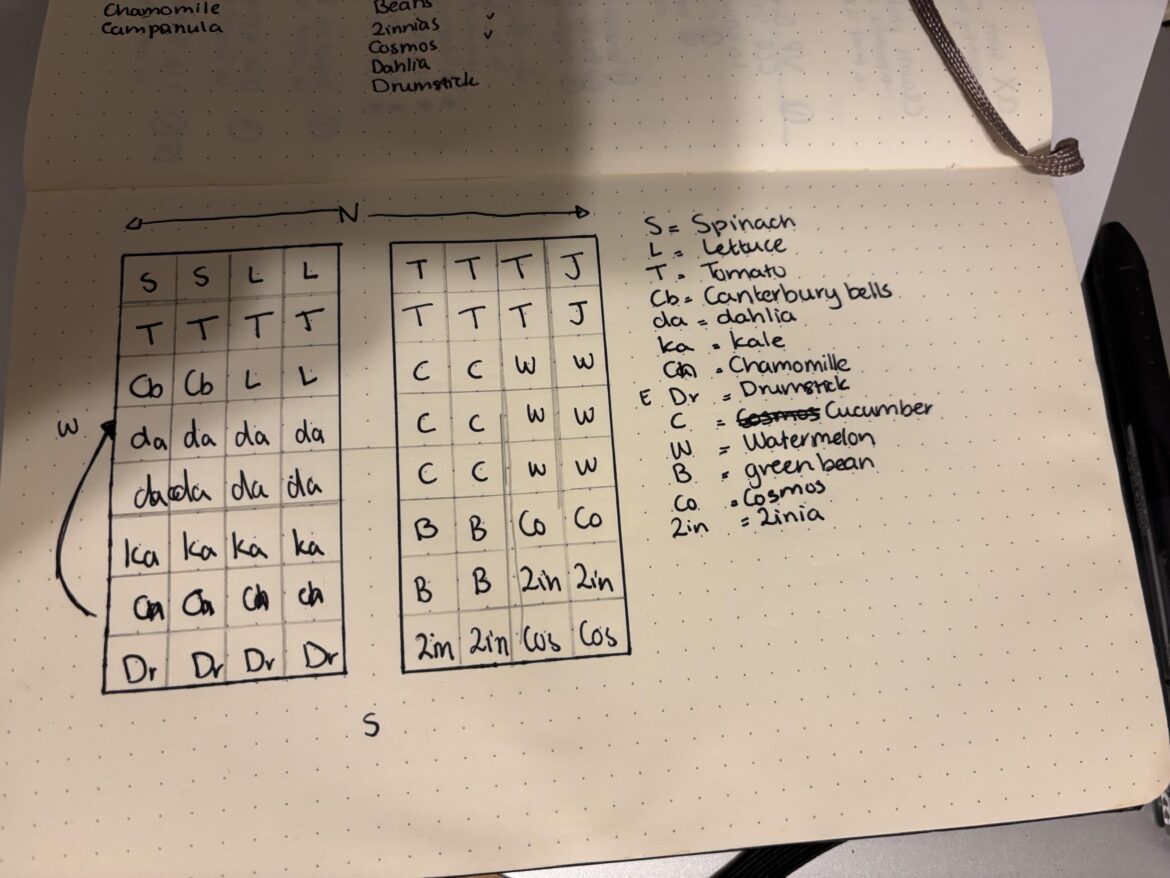 Chamomile
Campanula
Beans
Zinnias
Cosmos
Dahlia
Drumstick
N
W
E
S
S S L L
T T T T
Cb Cb L L
da da da da
da da da da
ka ka ka ka
Ch Ch Ch ch
Dr Dr Dr Dr
T T T J
T T T J
C C W W
C C W W
C C W W
B B Co Co
B B Zin Zin
Zin Zin Cos Cos
S = Spinach
L = Lettuce
T = Tomato
Cb = Canterbury bells
da = dahlia
ka = kale
Ch = Chamomille
Dr = Drumstick
C = Cosmos Cucumber
W = Watermelon
B = green bean
Co = Cosmos
Zin = Zinia